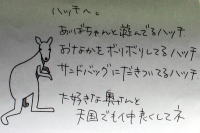 ハッチへ。
あっばちゃんと遊んでるハッチ
おなかをボリボリしてるハッチ
サンドバッグにだきついてるハッチ
大好きな奥さんと
天国でも仲良くしてネ